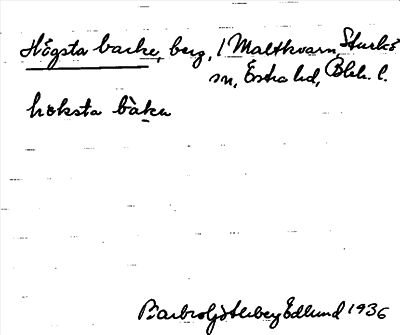 Högsta backe, berg, / Maltkvarn, Sturkö
sn, Östra hd, Blek. l.
höksta bàka
Barbro Götberg Edlund 1936